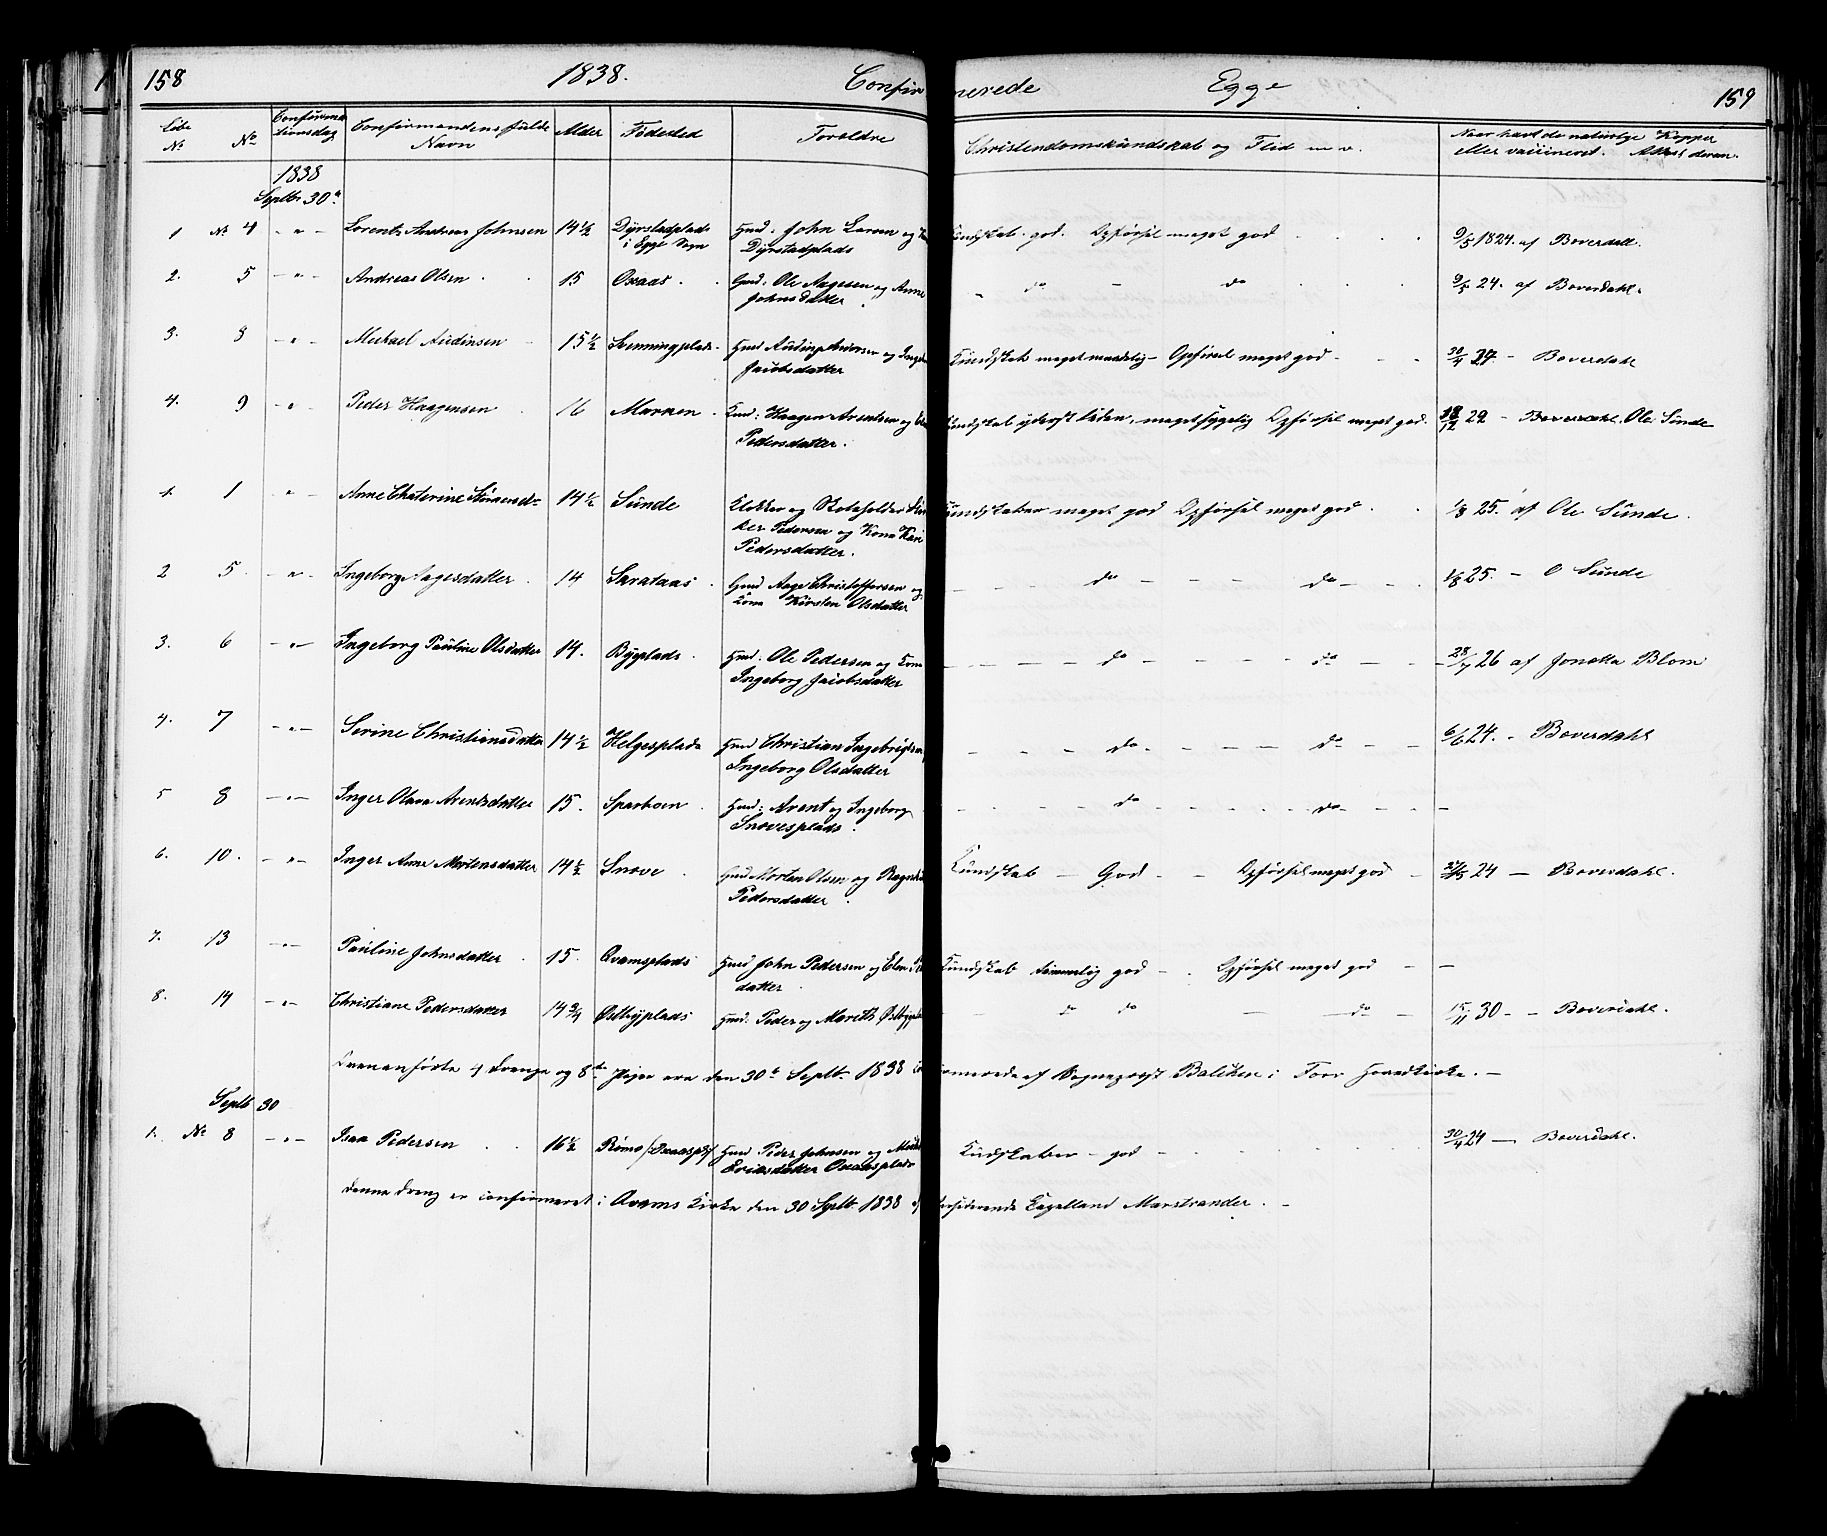 158 1838. Confir merede Egge 159
Löbe No No Confirma tionsdag Confirmandens fulde Navn Alder Födested Foreldre Christendomskundskab og Flid m.v. Naar havt de naturlige Kopper eller vaccineret. Attest derom.
1838
Septbr 30te
1 No 4 - " - Lorents Andreas Johnsen 14 1/2 Dyrstadplads i Egge Sogn Huusd: John Larsen og Dyrstadplads Kundskab god. Opförsel meget god 9/5 1824. af Boverdahl.
2. 5 - " - Andreas Olsen 15 Oxaas Huusd: Ole Aagesen og Anne Johnsdatter " do - do 9/5 24. af Boverdahl.
3. 8 - " - Michael Audinsen 15 1/2 Huusd Audin Andersen og Jacobsdatter Kundskab meget maadelig - Opförsel meget god - 30/4 24 - Boverdahl
4. 9 - " - Peder Haagensen 16 Marken Huusd: Haagen Arentsen og Pedersdatter. Kundskab yderst liden, meget sygelig Opförsel meget god. 18/12 29 - Boverdahl. Ole Sunde
1. 1 " Anne Chaterine 14 1/2 Sunde Klokker og Pedersen og Kone Kari Pedersdatter. Kundskaber meget god Opförsel meget god 1/8 25. af Ole Sunde.
2 5. - " - Ingeborg Aagesdatter 14 Huusd Aage Christoffersen og Kone Kirsten Olsdatter do - - - do - - 1/8 25. - O Sunde
3. 6 - " - Ingeborg Pauline Olsdatter 14. Byeplads Huusd: Ole Pedersen og Kone Ingeborg Jacobsdatter - - - do - - - do - - - 26 af Jonetta Blom
4. 7 - " - Serine Christiansdatter 14 1/2 Helgesplads Huusd Christian Ingebrigtsen Ingeborg Olsdatter - - - do - - - do - - 6/6 24. - Boverdahl
5 8 - " - Inger Olava Arentsdatter 15. Sparboen Huusd: Arent og Ingeborg - - - do - - - do - - -
6. 10. - " - Inger Anne Mortensdatter 14 1/2 Huusd Morten Olsen og Pedersdatter Kundskab - God - Opförsel meget god - 24 - Boverdahl.
7. 13 - " - Pauline Johnsdatter 15. Qvamsplads Huusd John Pedersen og datter Kundskab temmelig god - . Opförsel meget god - -
8. 14 - " - Christiane Pedersdatter 14 3/4 Östbyplads Huusd: Peder og Marith - do do - do - 15/11 30 - - Boverdahl.
Ovenanförte 4 Drenge og 8te Piger ere den 30te Septbr 1838 af Sogneprest i Hovedkirke. -
Septbr 30
1. No 8 - " - Isaa Pedersen 16 1/2 Huusd Peder Johnsen og Ericksdatter Oxaasplads Kundskaber - god - 30/4 24 - Boverdahl.
Denne Dreng er confirmeret i Qvams Kirke den 30 Septbr 1838 Marstrander. -